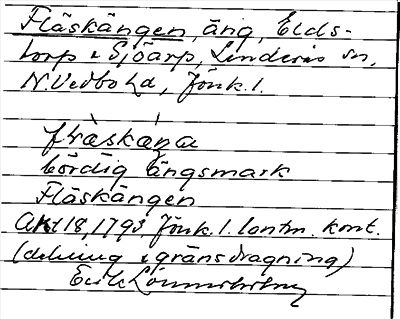 Fläskängen, äng, Elds-
torp & Sjöarp, Linderås sn,
N. Vedbo hd, Jönk. l.
fläskæŋa
bördig ängsmark
Fläskängen
Akt 18, 1793, Jönk. l. lantm. kont.
(delning & gränsdragning)
Erik